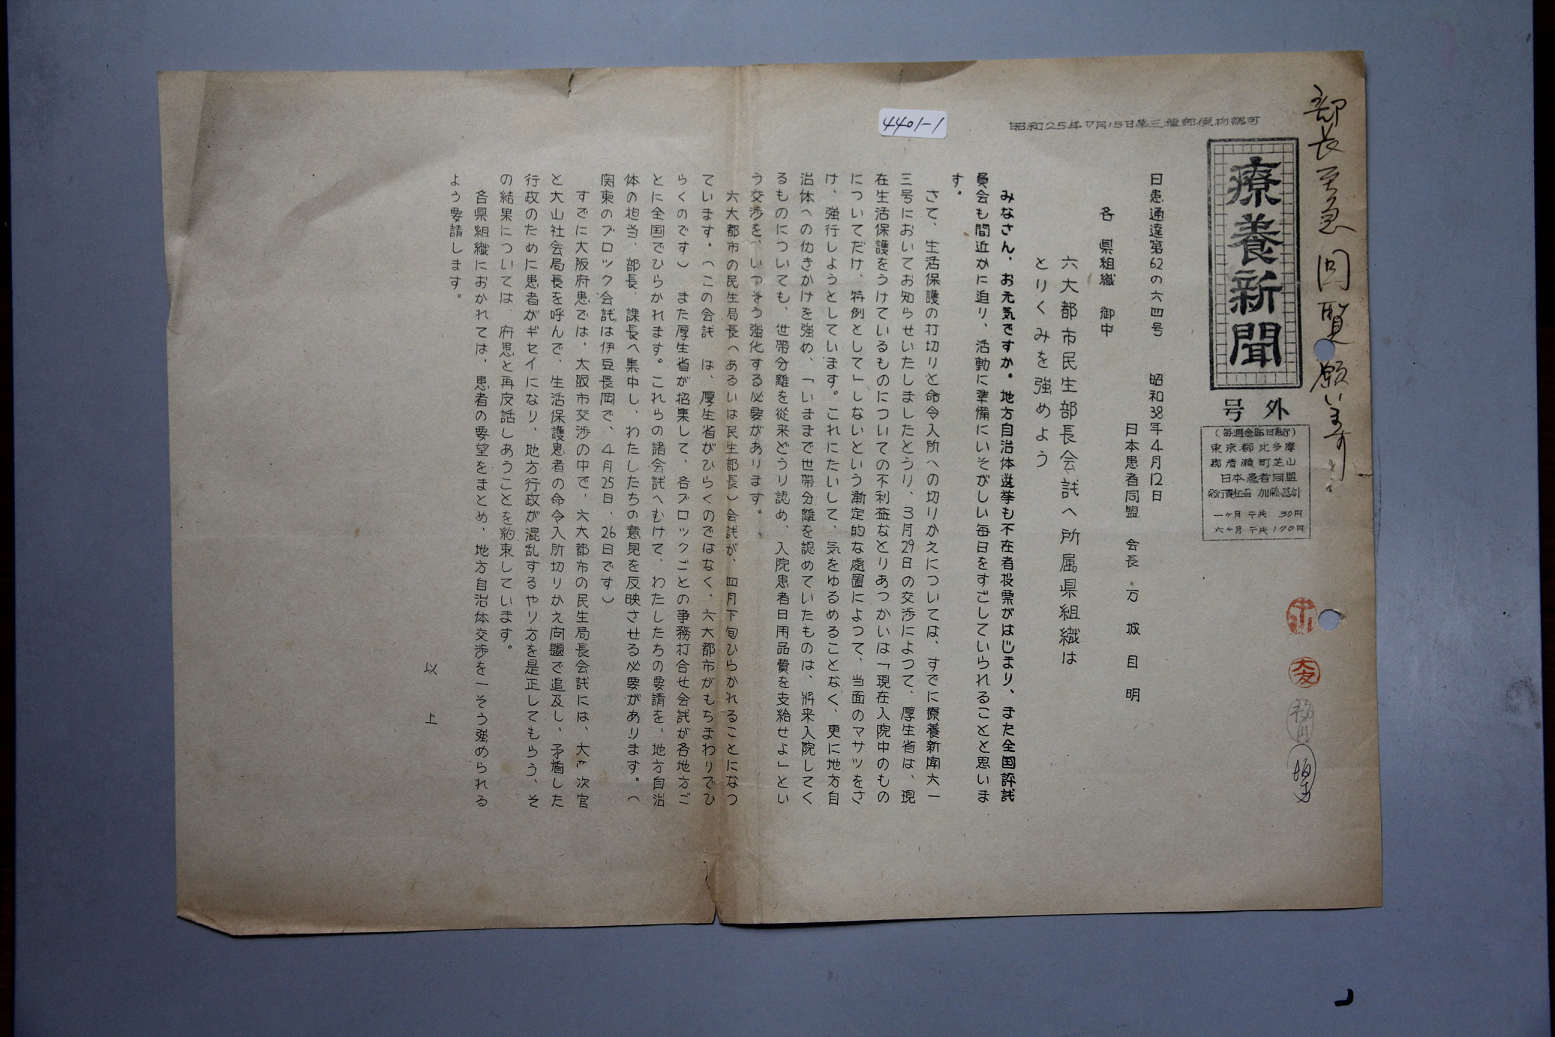 部長至急回覧願います
4401-1
昭和25年7月15日第三種郵便物認可
療養新聞
号外
(毎週金曜日発行)
東京都北多摩
郡清瀬町芝山
日本患者同盟
一ヶ月 〒共 30円
六ヶ月 〒共 170円
日患通達第62の六四号 昭和38年4月12日
日本患者同盟 会長 万城目明
各県組織 御中
六大都市民生部長会試へ所属県組織は
とりくみを強めよう
みなさん、お元気ですか。地方自治体選挙も不在者投票がはじまり、また全国評試
員会も間近かに迫り、活動に準備にいそがしい毎日をすごしていられることと思いま
す。
さて、生活保護の打切りと命令入所への切りかえについては、すでに療養新聞六一
三号においてお知らせいたしましたとうり、3月29日の交渉によって、厚生省は、現
在生活保護をうけているものについての不利益なとりあつかいは「現在入院中のもの
についてだけ、特例として」しないという漸定的な処置によつて、当面のマサツをさ
け、強行しようとしています。これにたいして、気をゆるめることなく、更に地方自
治体への仂きかけを強め、「いままで世帯分離を認めていたものは、将来入院してく
るものについても、世帯分離を従来どうり認め、入院患者日用品費を支給せよ」とい
う交渉を、いつそう強化する必要があります。
六大都市の民生局長(あるいは民生部長)会試が、四月下旬ひらかれることになつ
ています。(この会試 は、厚生省がひらくのではなく、六大都市がもちまわりでひ
らくのです) また厚生省が招集して、各ブロックごとの事務打合せ会試が各地方ご
とに全国でひらかれます。これらの諸会試へむけて、わたしたちの要請を、地方自治
体の担当、部長、課長へ集中し、わたしたちの意見を反映させる必要があります。(
関東のブロック会試は伊豆長岡で、4月25日、26日です)
すでに大阪府患では、大阪市交渉の中で、六大都市の民生局長会試には、大山次官
と大山社会局長を呼んで、生活保護患者の命令入所切りかえ問題で追及し、矛盾した
行政のために患者がギセイになり、地方行政が混乱するやり方を是正してもらう、そ
の結果については、府患と再度話しあうことを約束しています。
各県組織におかれては、患者の要望をまとめ、地方自治体交渉を一そう強められる
よう要請します。
以上